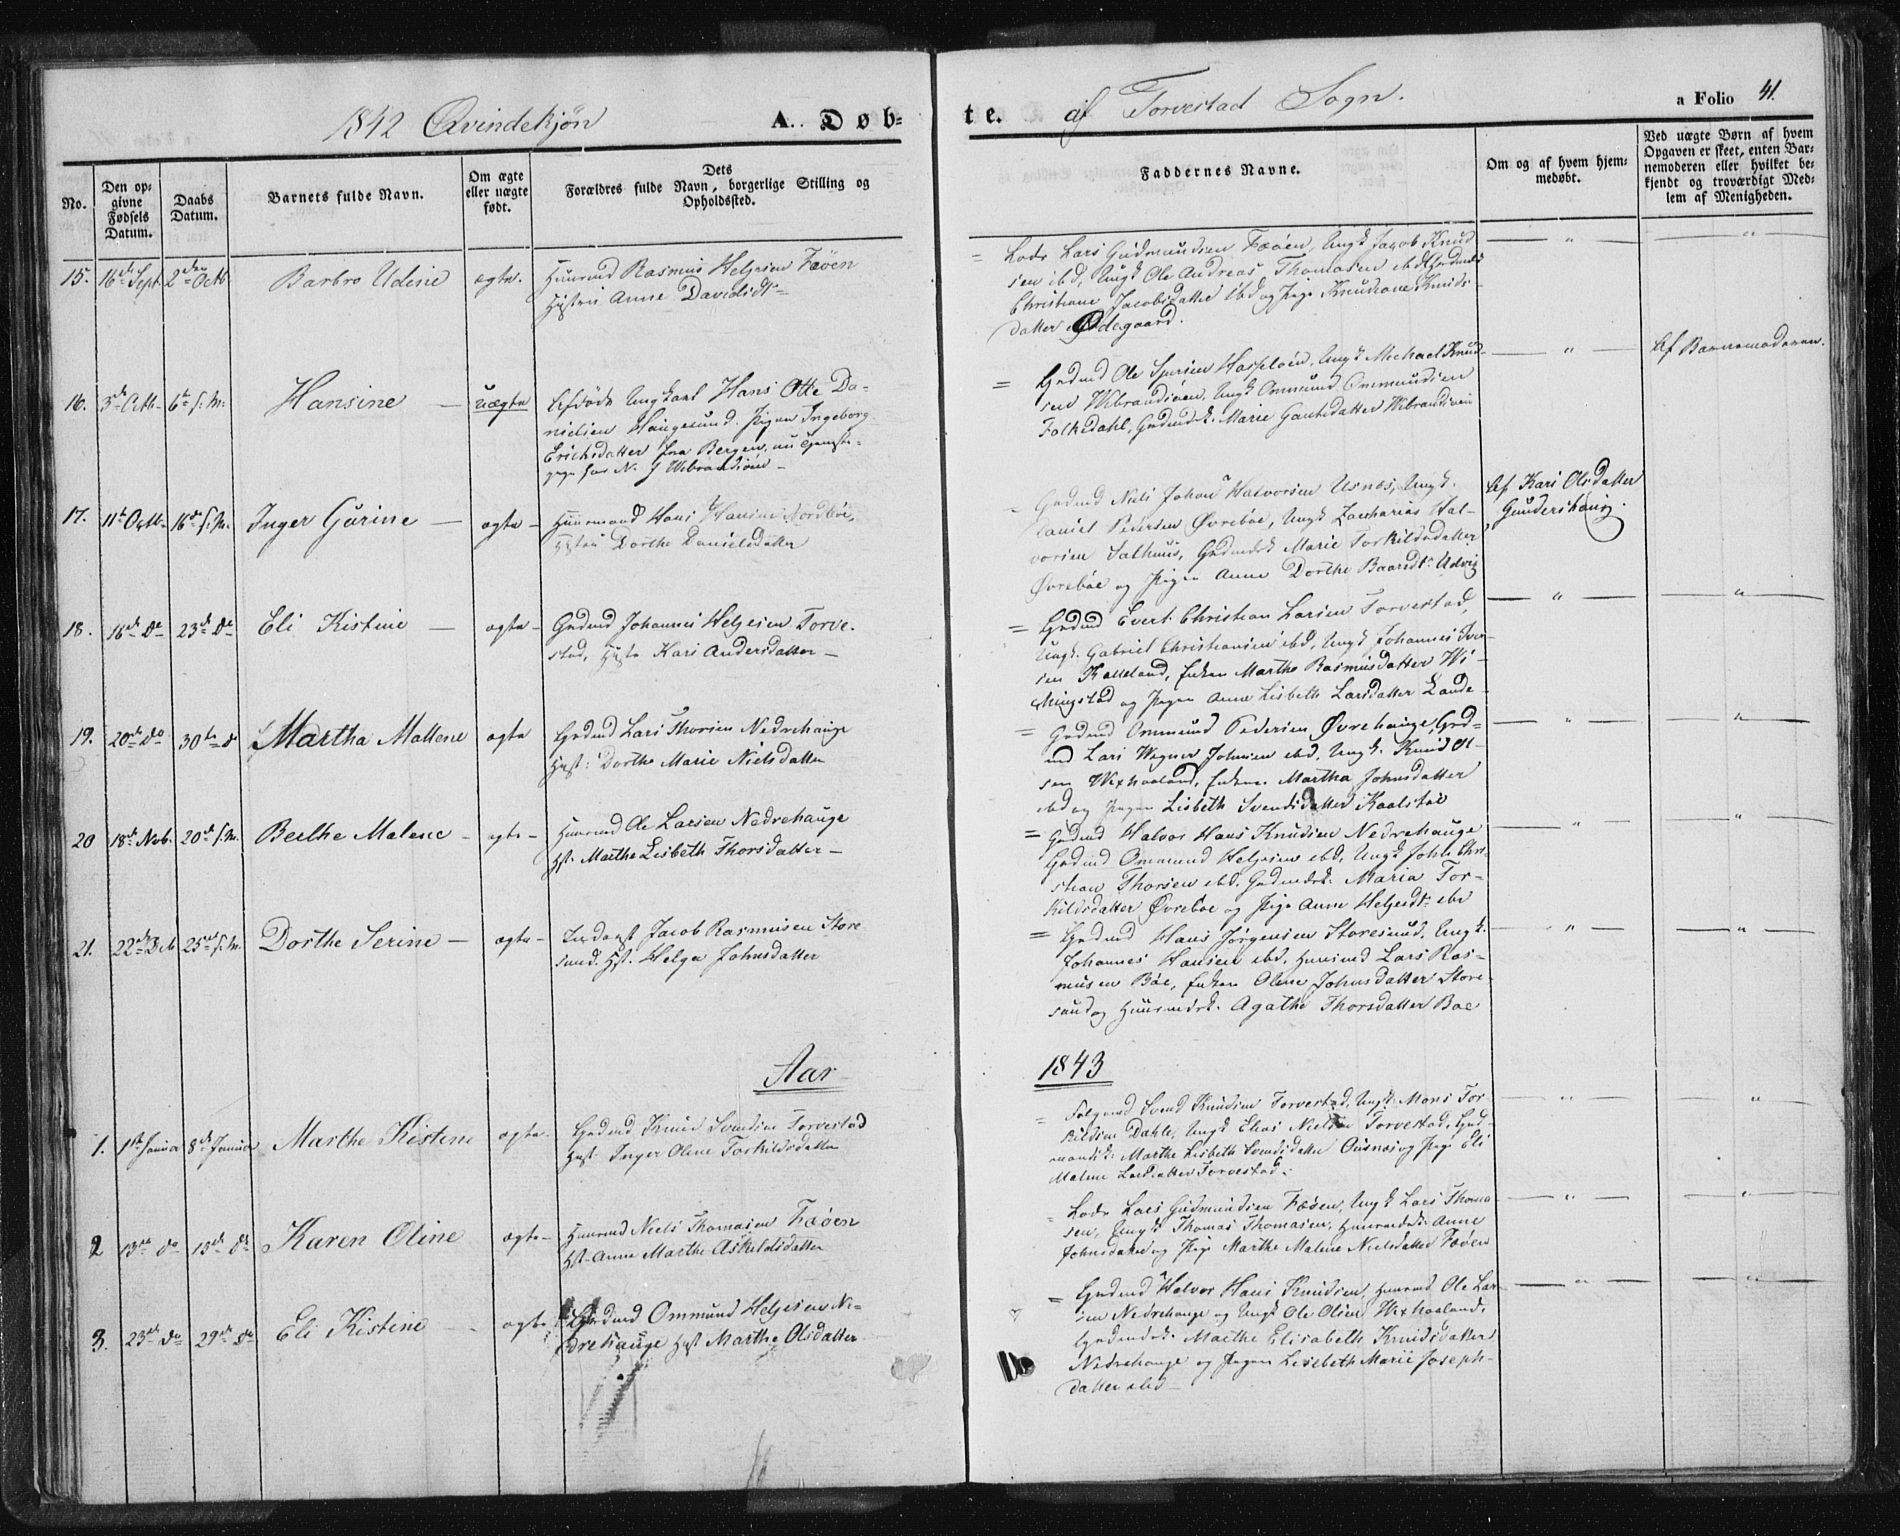 1842 Qvindekjön
A. Døb=
te.
af Torvestad Sogn.
a Folio 41.
No.
Den op=
givne
Fødsels
Datum.
Daabs
Datum.
Barnets fulde Navn.
Om ægte
eller uægte
født.
Dets
Forældres fulde Navn, borgerlige Stilling og
Opholdssted.
Faddernes Navne.
Om og af hvem hjem=
medøbt.
Ved uægte Børn af hvem
Opgaven er skeet, enten Bar=
nemoderen eller hvilket be=
kjendt og troværdigt Med=
lem af Menigheden.
15. 16de Sept. 2den Octb Barbro Udine ægte.
Huusmd Rasmus Helgesen Fæøen
Hustru Anne Davidsdtr
Lods Lars Gudmundsen Fæøen, Ungk Jacob Knud
sen ibd, Ungk Ole Andreas Thomasen ibd
Christiane Jacobsdatter ibd og Pige Knudsane Knuds
datter Ødegaard.
16. 3de Octb 6te f. M. Hansine uægte
Ungkarl Hans Otte Da-
nielsen Haugesund. Pigen Ingeborg
Erichsdatter fra Bergen, nu Tjeneste-
pige hos N. J Wibrandsöen
Grdmd Ole Hasseløen, Ungk Michael Knud-
sen Wibrandsöen, Ungk Ommund Ommundsen
Folkedahl, Grdmdsk. Marie Gautsdatter Wibrandsöen
Af Barnemoderen.
17. 11te Octb 16de f. M. Inger Gurine ægte
Huusmand Hans Hansen Nordbøe,
Hustru Dorthe Danielsdatter
Grdmd Niels Johan Halvorsen Usnes, Ungk.
Daniel Pedersen Øvrebøe, Ungk Zacharias Hal-
vorsen Salhuus, Grdmdsk Marie Torkildsdatter
Øvrebøe og Pigen Anne Dorthe Baardsdtr Udvig
Af Kari Olsdatter
Gundershaug.
18. 16de Do 23de Do Eli Kistine ægte
Grdmd Johannes Helgesen Torve-
stad, Hustr Kari Andersdatter
Grdmd Evert Christian Larsen Torvestad,
Ungk. Gabriel Christiansen ibd, Ungk Johannes Iver-
sen Kalleland, Enken Marthe Rasmusdatter Wi-
Mingstad og Pigen Anne Lisbeth Larsdatter Lande
19. 20de do 30te do Martha Mallene ægte
Grdmd Lars Thorsen Nedrehauge
Hust: Dorthe Marie Nielsdatter
Grdmd Ommund Pedersen Øvrehauge, Grd=
md Lars Wegner Johnsen ibd, Ungk. Knud Ol-
sen Wixhaaland, Enken Martha Johnsdatter
ibd og Pigen Lisbeth Svendsdatter Kaalstøe
20 18de Nvb. 20de f. M. Berthe Malene ægte
Huusmd Ole Larsen Nedrehauge
Hst. Marthe Lisbeth Thorsdatter
Grdmd Halvor Hans Knudsen Nedrehauge
Grdmd Ommund Helgesen ibd, Ungk John Chri-
stian Thorsen ibd. Grdmdsk. Maria Tor-
kildsdatter Øvrebøe og Pige Anne Helgesdtr ibd
21. 22de Dcb 25de f. M. Dorthe Serine ægte
Inderst Jacob Rasmusen Store
sund. Hst. Helga Johnsdatter
Grdmd Hans Jørgensen Storesund, Ungk.
Johannes Hansen ibd, Huusmd Lars Ras-
musen Bøe, Enken Olene Johnsdatter Store-
sund og Huusmdsk. Agathe Thorsdatter Bøe
Aar
1843
1. 1ste Januar 8de Januar Marthe Kistene ægte
Grdmd Knud Svendsen Torvestad
Hust Inger Olene Torkildsdatter
Folgemd Svend Knudsen Torvestad, Ungk. Mons Tor-
kildsen Dahle, Ungk Elias Nielsen Torvestad, Grd-
mandsk: Marthe Lisbeth Svendsdatter Ousnes og Pige Eli
Malene Larsdatter Torvestad.
2 13de do 15de do Karen Oline ægte
Huusmd Niels Thomasen Fæøen
Hst. Anne Marthe Askeldsdatter
Lods Lars Gudmundsen Fæøen, Ungk Lars Thoma-
sen, Ungk Thomas Thomasen, Huusmdsk. Anne
Johnsdatter og Pige Marthe Malene Nielsdatter Fæøen
3. 23de do 29de do Eli Kistine ægte
Grdmd Ommund Helgesen Ne-
drehauge Hust Marthe Olsdatter
Grdmd Halvor Hans Knudsen, Huusmd Ole Lar-
sen Nedrehauge og Ungk Ole Olsen Wixhaaland,
Grdmdsk. Marthe Elisabeth Knudsdatter
Nedrehauge og Pigen Lisebeth Marie Joseph-
datter ibd